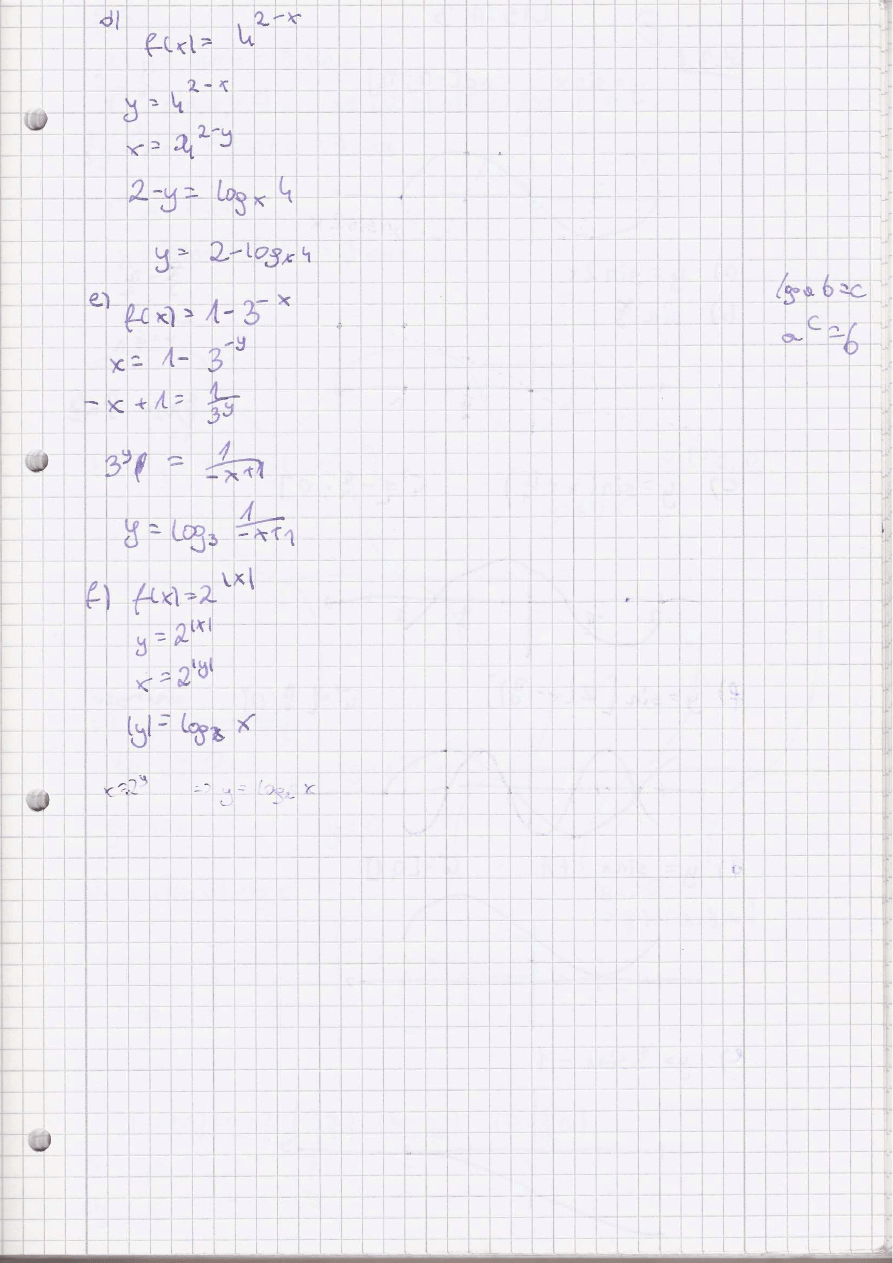 d)
f(x) = 4^{2-x}
y = 4^{2-x}
x = 4^{2-y}
2-y = log_x 4
y = 2-log_x 4
e) f(x) = 1 - 3^{-x}
x = 1 - 3^{-y}
-x + 1 = \frac{1}{3^y}
3^y = \frac{1}{-x+1}
y = log_3 \frac{1}{-x+1}
f) f(x) = 2^{|x|}
y = 2^{|x|}
x = 2^{|y|}
|y| = log_2 x
x = 2^y => y = log_2 x
log_a b = c
a^c = b